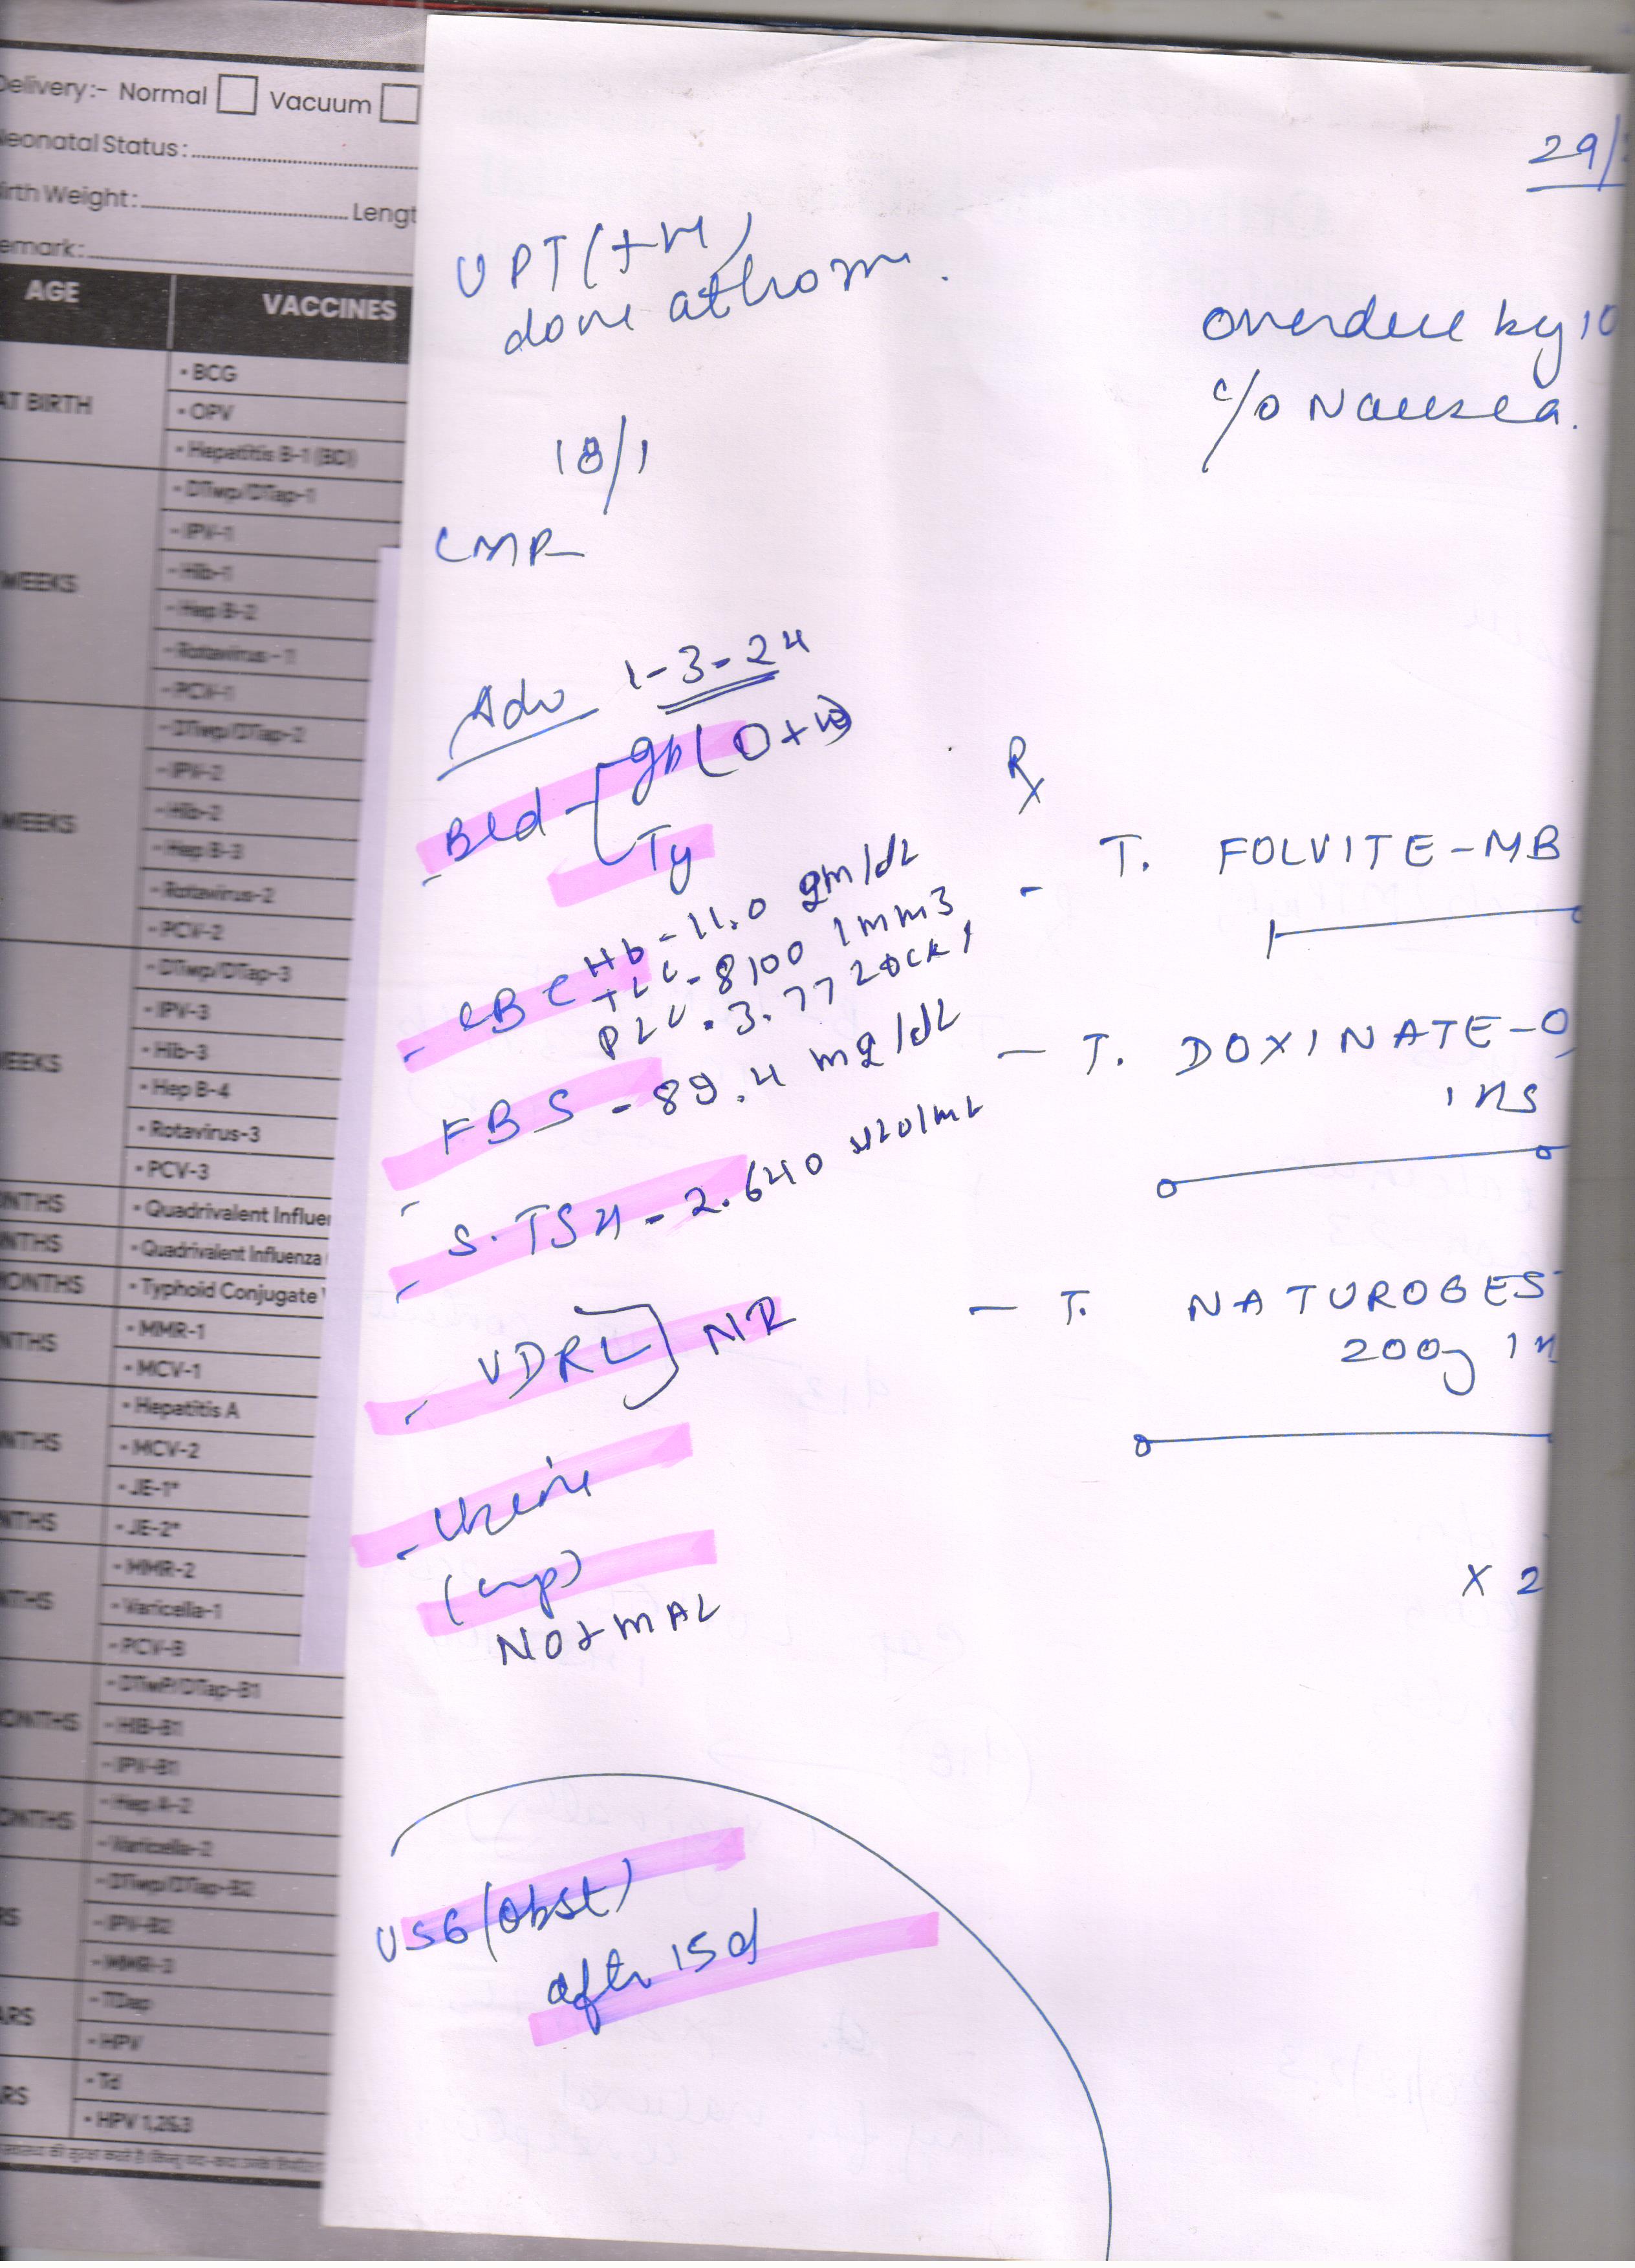 Delivery:- Normal Vacuum
Neonatal Status:
Birth Weight: Lengt
emark:
AGE VACCINES
AT BIRTH
• BCG
• OPV
• Hepatitis B-1 (BD)
WEEKS
• DTwp/DTap-1
• IPV-1
• Hib-1
• Hep B-2
• Rotavirus - 1
• PCV-1
WEEKS
• DTwp/DTap-2
• IPV-2
• Hib-2
• Hep B-3
• Rotavirus-2
• PCV-2
WEEKS
• DTwp/DTap-3
• IPV-3
• Hib-3
• Hep B-4
• Rotavirus-3
• PCV-3
ONTHS • Quadrivalent Influe
NTHS • Quadrivalent Influenza
MONTHS • Typhoid Conjugate
NTHS
• MMR-1
• MCV-1
NTHS
• Hepatitis A
• MCV-2
• JE-1*
NTHS • JE-2*
NTHS
• MMR-2
• Varicella-1
• PCV-B
ONTHS
• DTwP/DTap-B1
• HIB-B1
• IPV-B1
ONTHS
• Hep A-2
• Varicella-2
RS
• DTwp/DTap-B2
• IPV-B2
• MMR-3
ARS
• TDap
• HPV
RS
• Td
• HPV 1,2&3
29/
UPT (+ve)
done at home.
overdue by 10
c/o Nausea.
18/1
LMP
Adv 1-3-24
Bld gp (O+ve)
Ty
CBC Hb - 11.0 gm/dl
TLC - 8100 /mm3
PLU . 3.77
FBS - 89.4 mg/dL
S.TSH - 2.640
VDRL] NR
Urine
NOrmAL
USG (obst)
after 15d
Rx
- T. FOLVITE-MB
- T. DOXINATE-O
1 HS
- T. NATUROGES
200g 1
X 2